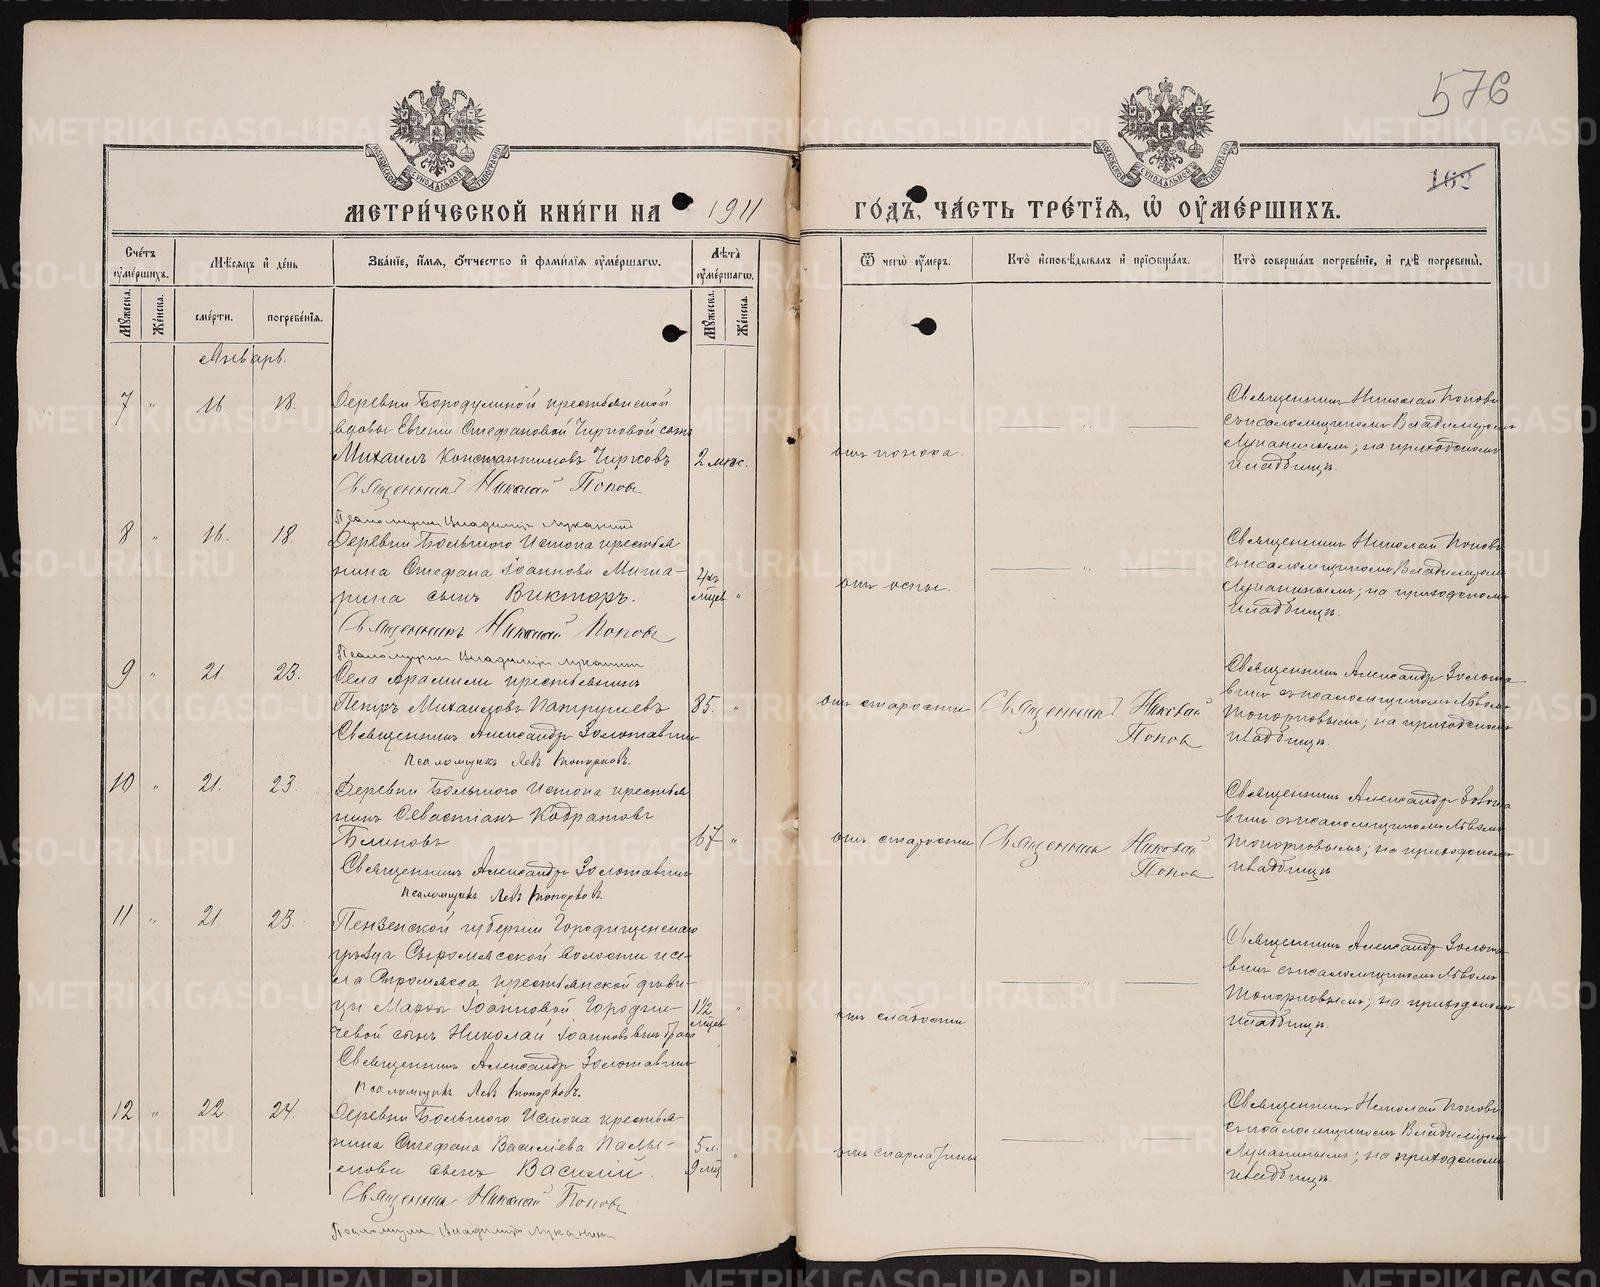 576
162
МЕТРИ́ЧЕСКОЙ КНИ́ГИ НА 1911 ГО́ДЪ, ЧА́СТЬ ТРЕ́ТІЯ, Ѡ ОУМЕ́РШИХЪ.
Сче́тъ оуме́ршихъ.
Мѣсяцъ и де́нь
Зва́ніе, и́мя, о́тчество и фами́лія оуме́ршагѡ.
Лѣта̀ оуме́ршагѡ.
Ѿ чегѡ̀ оу́меръ.
Кто̀ исповѣ́дывалъ и прїобща́лъ.
Кто̀ соверша́лъ погребе́ніе, и гдѣ̀ погребены̀.
Му́жеска.
Же́нска.
сме́рти.
погребе́нія.
Му́жеска.
Же́нска.
Январь.
7 " 16. 18.
Деревни Бородулиной крестьянской
вдовы Евгении Стефановой Чирковой сынъ
Михаилъ Константиновъ Чирковъ
Священникъ Николай Поповъ
Псаломщикъ Владиміръ Луканинъ
2 мѣс.
отъ поноса.
Священникъ Николай Поповъ
съ псаломщикомъ Владиміромъ
Луканинымъ; на приходскомъ
кладбищѣ.
8 " 16. 18.
Деревни Большого Истока крестья
нина Стефана Іоаннова Миша-
рина сынъ Викторъ.
Священникъ Николай Поповъ
Псаломщикъ Владиміръ Луканинъ
мѣсяц. "
отъ оспы.
Священникъ Николай Поповъ
съ псаломщикомъ Владиміромъ
Луканинымъ; на приходскомъ
кладбищѣ.
9 " 21 23.
Села Арамили крестьянинъ
Петръ Михаиловъ Патрушевъ
Священникъ Александръ Золотавинъ
Псаломщикъ Левъ Топорковъ.
85. "
отъ старости
Священникъ Николай
Поповъ
Священникъ Александръ Золота
винъ съ псаломщикомъ Львомъ
Топорковымъ; на приходскомъ
кладбищѣ.
10 " 21. 23.
Деревни Большого Истока крестья
нинъ Севастіанъ Кодратовъ
Блиновъ
Священникъ Александръ Золотавинъ
Псаломщикъ Левъ Топорковъ.
67 "
отъ старости
Священникъ Николай
Поповъ
Священникъ Александръ Золота
винъ съ псаломщикомъ Львомъ
Топорковымъ; на приходскомъ
кладбищѣ.
11 " 21. 23.
Пензенской губерніи Городищенскаго
уѣзда Сыромясской волости и се-
ла Сыромяса, крестьянской дѣви-
цы Марѳы Іоанновой Городни-
чевой сынъ Николай Іоанновъ внѣ брач
Священникъ Александръ Золотавинъ
Псаломщикъ Левъ Топорковъ.
1½ "
мѣсяц
отъ слабости
Священникъ Александръ Золота
винъ съ псаломщикомъ Львомъ
Топорковымъ; на приходскомъ
кладбищѣ.
12 " 22. 24.
Деревни Большого Истока крестья-
нина Стефана Василіева Палы-
сынъ Василій.
Священникъ Николай Поповъ
Псаломщикъ Владиміръ Луканинъ
5 л. "
9 мѣс
отъ скарлатины
Священникъ Николай Поповъ
съ псаломщикомъ Владиміромъ
Луканинымъ; на приходскомъ
кладбищѣ.
METRIKI.GASO-URAL.RU